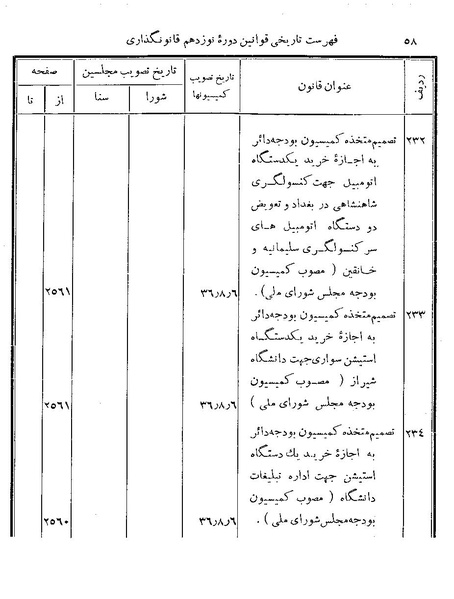 ۵۸ فهرست تاریخی قوانین دورهٔ نوزدهم قانونگذاری
ردیف عنوان قانون تاریخ تصویب کمیسیونها تاریخ تصویب مجلسین صفحه
شورا سنا از تا
۲۳۲ تصمیم متخذه کمیسیون بودجه دائر
به اجازهٔ خرید یکدستگاه
اتومبیل جهت کنسولگری
شاهنشاهی در بغداد و تعویض
دو دستگاه اتومبیل های
سرکنسولگری سلیمانیه و
خانقین ( مصوب کمیسیون
بودجه مجلس شورای ملی). ۳۶٫۸٫۶ ۲۵۶۱
۲۳۳ تصمیم متخذه کمیسیون بودجه دائر
به اجازهٔ خرید یکدستگاه
استیشن سواری جهت دانشگاه
شیراز ( مصوب کمیسیون
بودجه مجلس شورای ملی ) ۳۶٫۸٫۶ ۲۵۶۱
۲۳٤ تصمیم متخذه کمیسیون بودجه دائر
به اجازهٔ خرید یك دستگاه
استیشن جهت اداره تبلیغات
دانشگاه ( مصوب کمیسیون
بودجه مجلس شورای ملی ). ۳۶٫۸٫۶ ۲۵۶۰